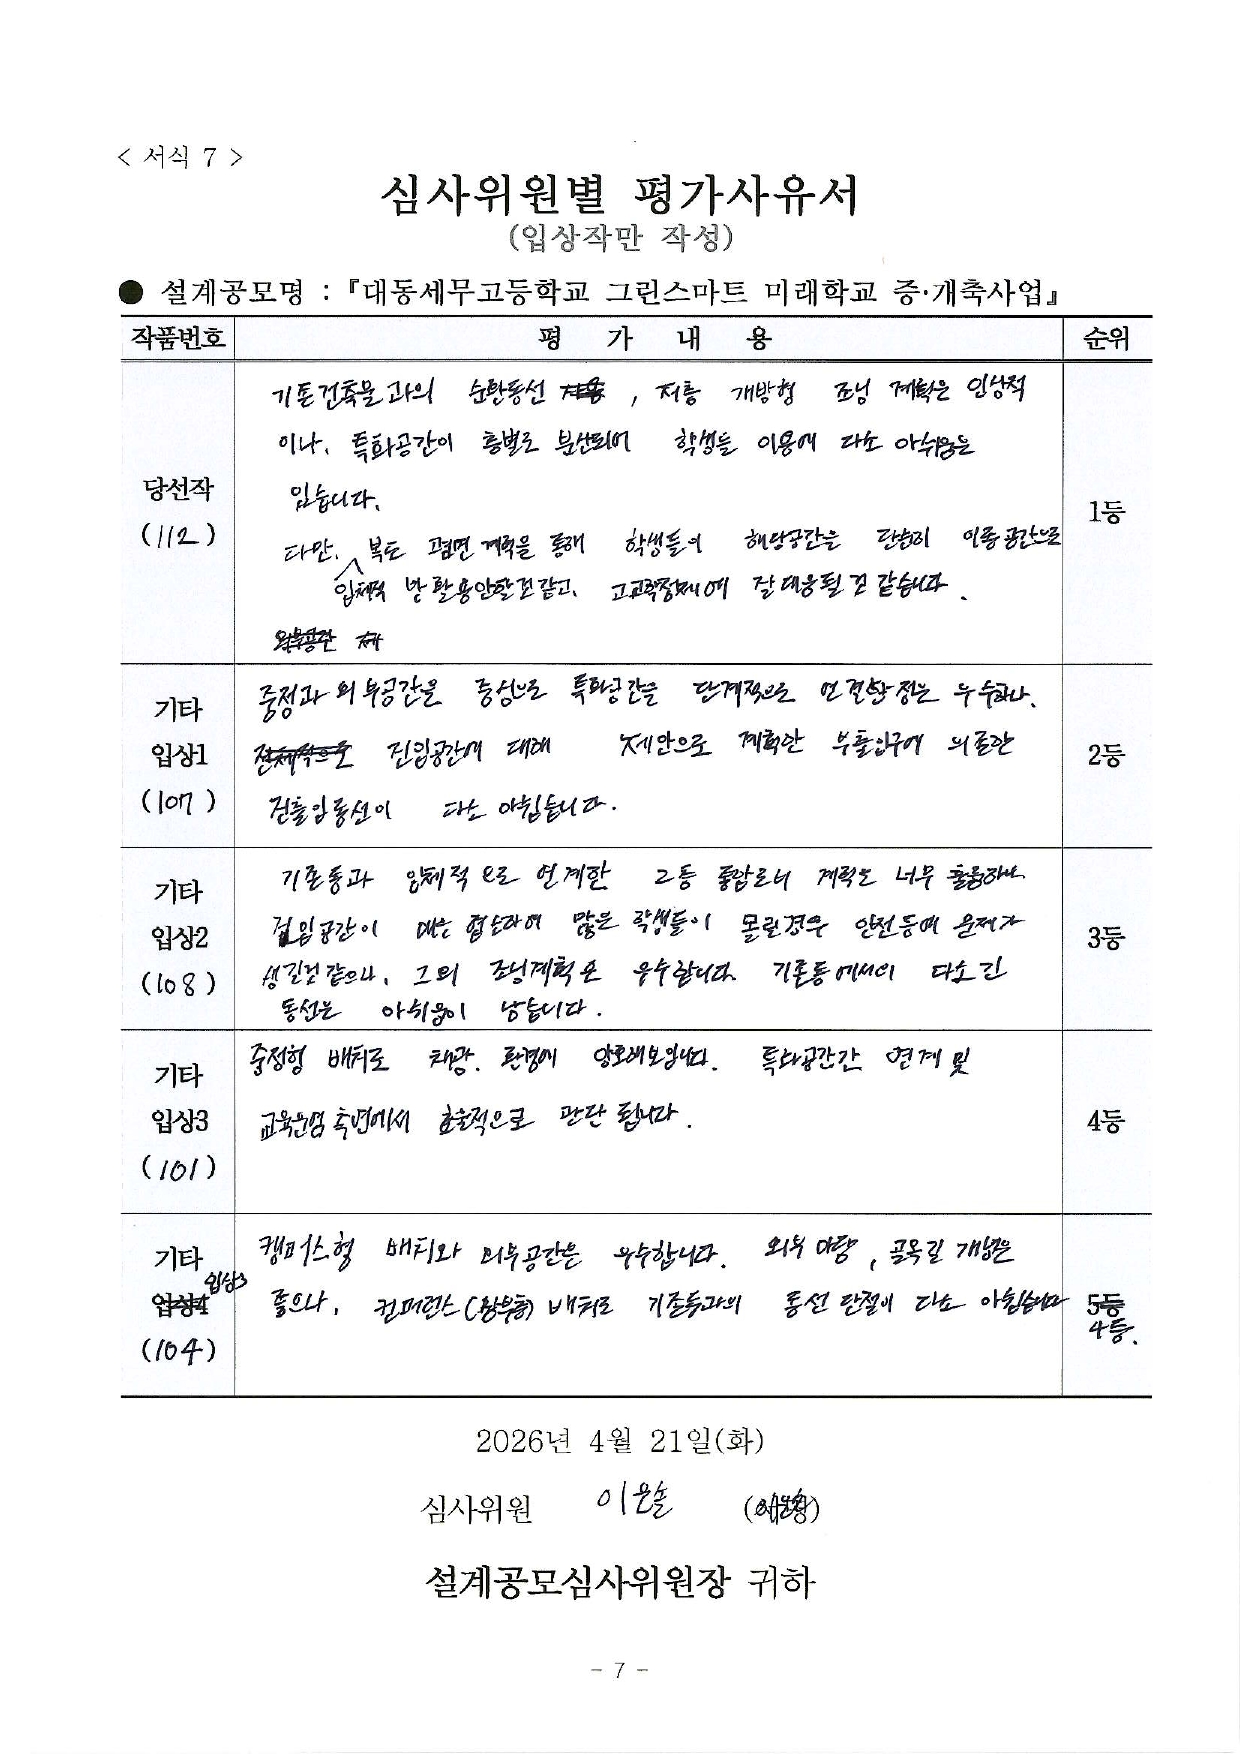 < 서식 7 >
심사위원별 평가사유서
(입상작만 작성)
● 설계공모명 : 『대동세무고등학교 그린스마트 미래학교 증·개축사업』
작품번호 평 가 내 용 순위
당선작
(112)
기존건축물과의 순환동선 , 저층 개방형 조닝 계획은 인상적
이나, 특화공간이 층별로 분산되어 학생들 이용에 다소 아쉬움은
있습니다.
다만, 복도 평면계획을 통해 학생들이 해당공간을 단순히 이동공간으로
입체적 활용안할것같고, 고교학점제에 잘 대응될것 같습니다.
1등
기타
입상1
(107)
중정과 외부공간을 중심으로 특화공간을 단계적으로 연결한 점은 우수하나,
진입공간에 대해 제안으로 계획한 부출입구에 의존한
진출입동선이 다소 아쉽습니다.
2등
기타
입상2
(108)
기존동과 입체적으로 연계한 2층 통합로비 계획도 너무 훌륭하나
진입공간이 매는 협소하여 많은 학생들이 몰릴경우 안전등에 문제가
생길것 같으나, 그외 조닝계획은 우수합니다. 기존동에서의 다소 긴
동선은 아쉬움이 남습니다.
3등
기타
입상3
(101)
중정형 배치로 채광, 환경에 양호해보입니다. 특화공간간 연계 및
교육운영 측면에서 효율적으로 판단 됩니다.
4등
기타
입상3
입상4
(104)
캠퍼스형 배치와 외부공간은 우수합니다. 외부 마당, 골목길 개념은
좋으나, 컨퍼런스 배치로 기존동과의 동선 단절이 다소 아쉽습니다
5등
4등.
2026년 4월 21일(화)
심사위원 이은솔
설계공모심사위원장 귀하
- 7 -